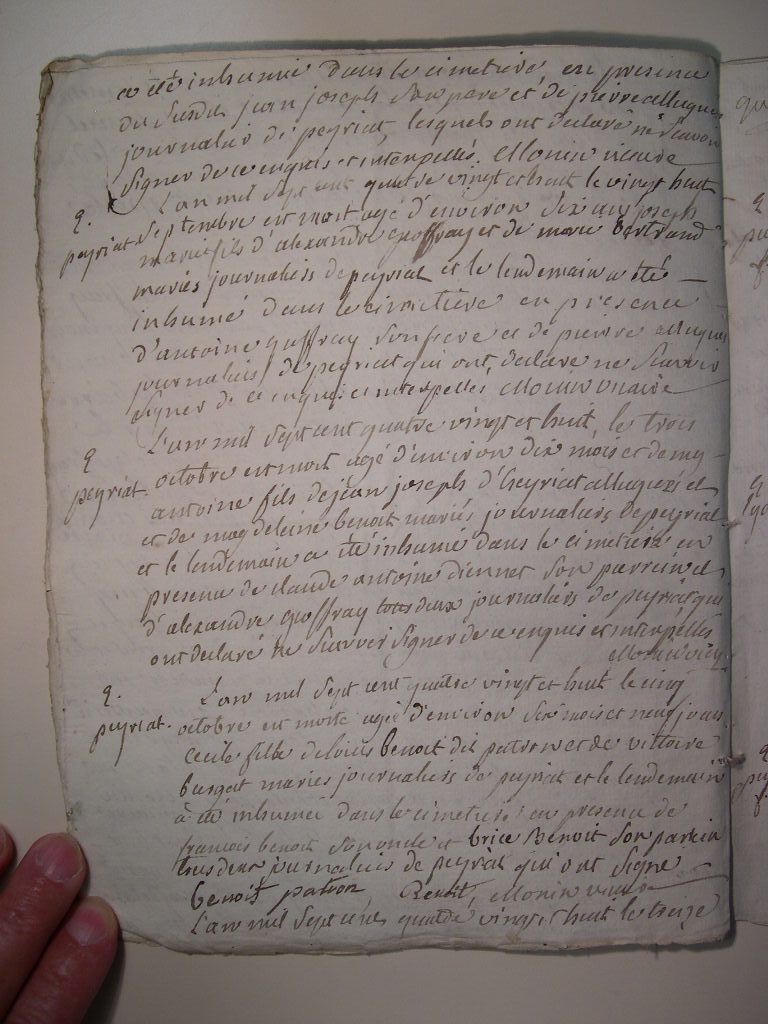 a été inhumée dans le cimetière, en presence
du susdit jean joseph son pere et de pierre alluguies
journalier de peyriat, lesquels ont declaré ne scavoir
signer de ce enquis et interpellés. Monin vicaire
L'an mil sept cent quatre vingt et huit le vingt huit
2.
peyriat. septembre est mort agé d'environ six ans joseph
marie fils d'alexandre goffray et de marie Bertrand
mariés journaliers de peyriat et le lendemain a été
inhumé dans le cimetière en presence
d'antoine guffray son frere et de pierre alluguies
journaliers de peyriat qui ont declare ne scavoir
signer de ce enquis et interpelles Monin vicaire
L'an mil sept cent quatre vingt et huit, le trois
2
peyriat. octobre est mort agé d'environ dix mois et demy
antoine fils de jean joseph d'heyriat et
et de magdeleine benoit mariés journaliers de peyriat
et le lendemain a été inhumé dans le cimetiere en
presence de claude antoine son parrein et
d'alexandre goffray tous deux journaliers de peyriat qui
ont declaré ne scavoir signer de ce enquis et interpellés
Monin vic.
2.
L'an mil sept cent quatre vingt et huit le cinq
peyriat. octobre est morte agée d'environ six mois et neuf jours
Cecile fille de louis benoit dit patron et de victoire
mariés journaliers de peyriat et le lendemain
à été inhumée dans le cimetiere en presence de
francois benoit son oncle et brice Benoit son parrein
tous deux journaliers de peyriat qui ont signe
benoit patron, Benoit, Monin vicaire
L'an mil sept cent quatre vingt et huit le treize